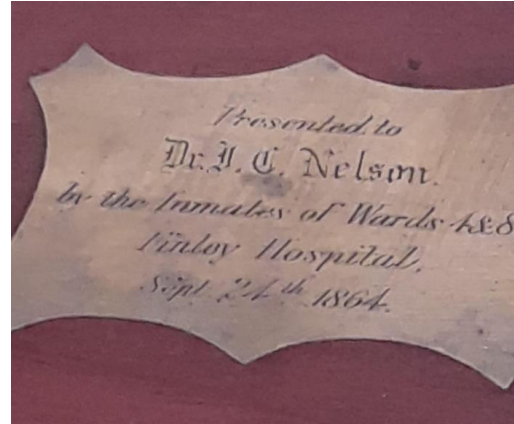 Presented to
Dr. J. C. Nelson.
by the Inmates of Wards 4&8
Finley Hospital.
Sept. 24th 1864.